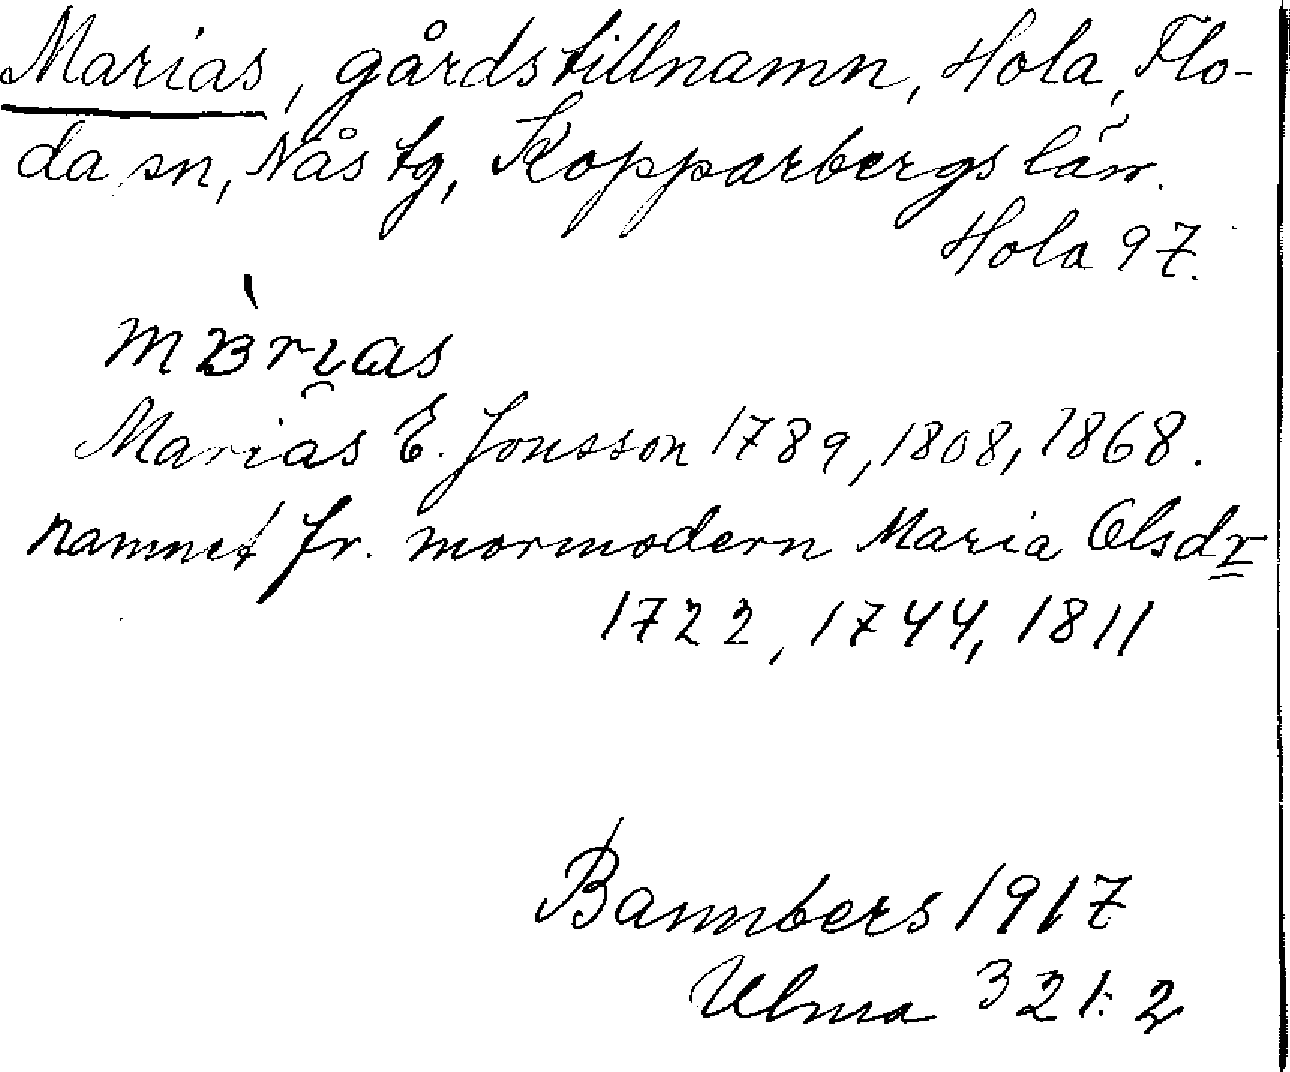 Marias, gårdstillnamn, Hola, Flo-
da sn, Nås tg, Kopparbergs län.
Hola 97.
Marias E. Jonsson 1789, 1808, 1868.
namnet fr. mormodern Maria Olsdr
1722, 1744, 1811
Bannbers 1917
Ulma 321:2